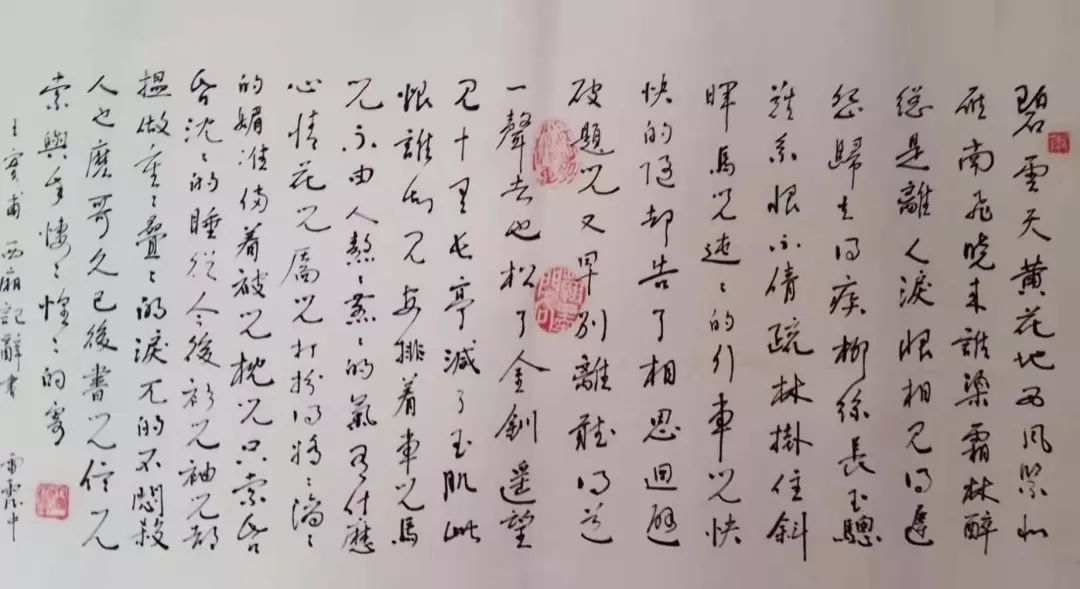 碧雲天黃花地西風緊北
雁南飛曉來誰染霜林醉
總是離人淚恨相見得遲
怨歸去得疾柳絲長玉驄
難系恨不倩疏林掛住斜
暉馬兒迍〻的行車兒快
快的隨却告了相思迴避
破題兒又早別離聽得道
一聲去也松了金釧遙望
見十里長亭減了玉肌此
恨誰知見安排着車兒馬
兒不由人熬〻煎〻的氣有什麼
心情花兒靨兒打扮得嬌〻滴〻
的媚准備着被兒枕兒只索昏
昏沈〻的睡從今後衫兒袖兒都
揾做重〻疊〻的淚兀的不悶殺
人也麼哥久已後書兒信兒
索與我悽〻惶〻的寄
王實甫西廂記辭書